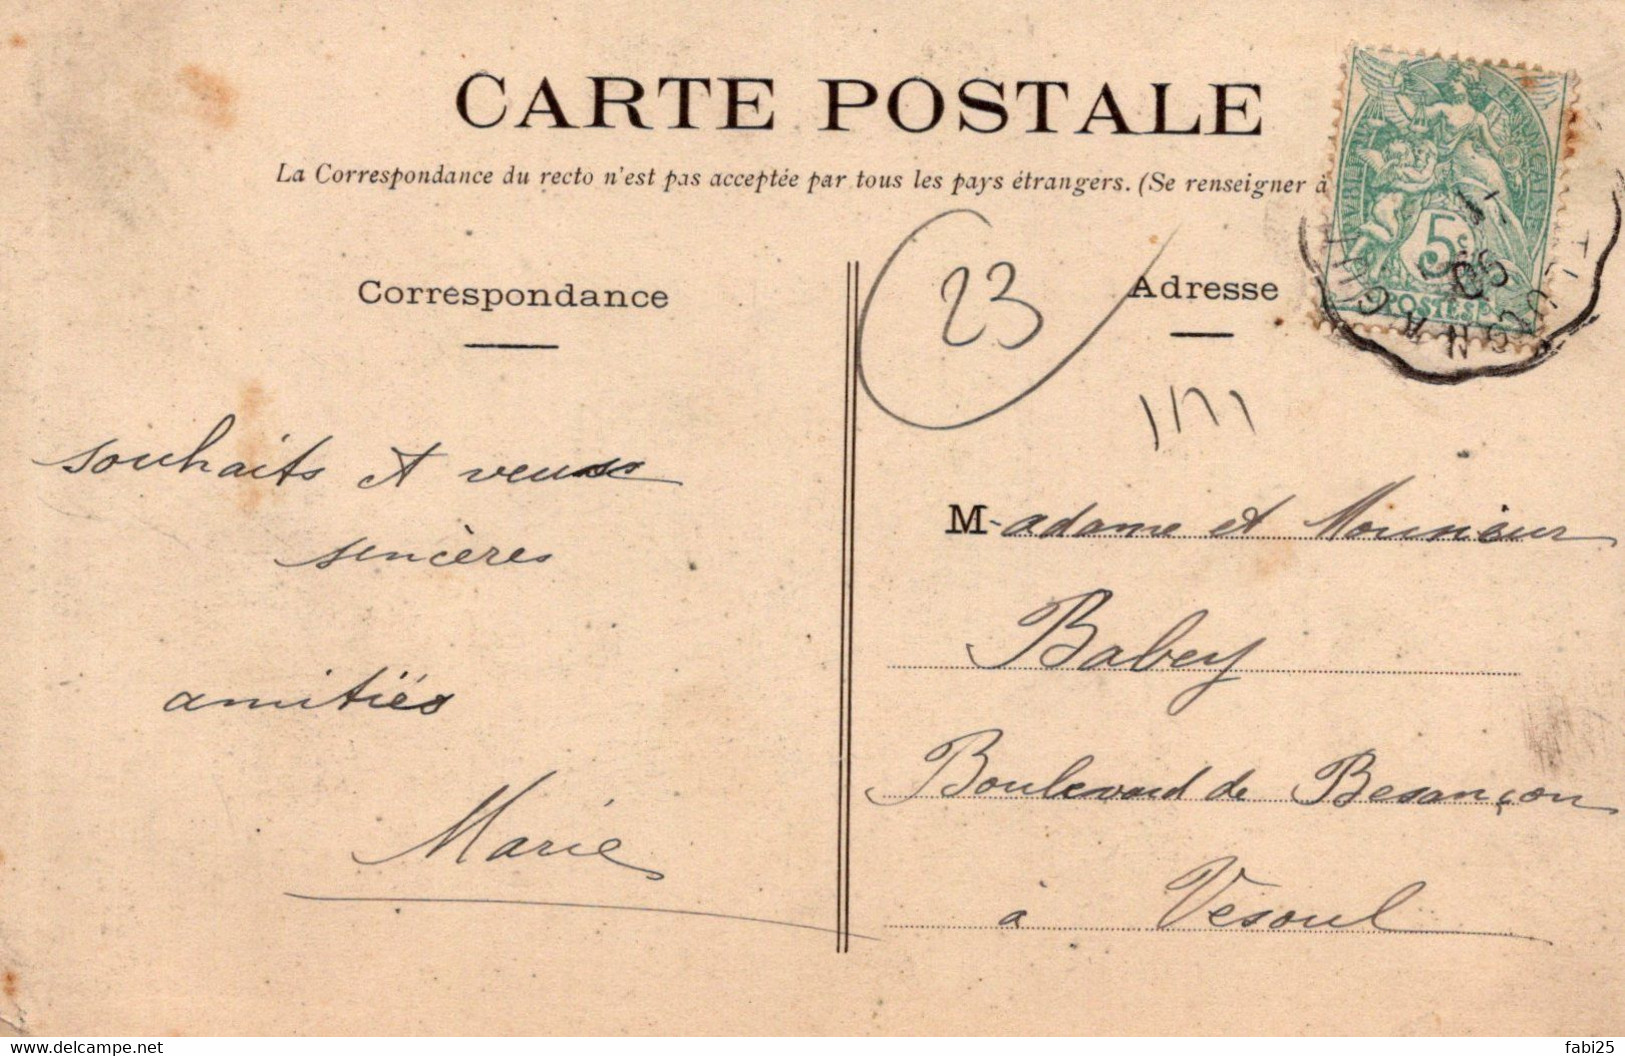 CARTE POSTALE
La Correspondance du recto n'est pas acceptée par tous les pays étrangers. (Se renseigner à
Correspondance
souhaits et veux
sincères
amitiés
Marie
23
Adresse
Madame et Monsieur
Babey
Boulevard de Besançon
à Vesoul
5c
POSTES
delcampe.net
fabi25